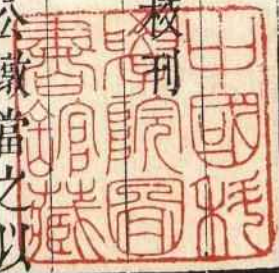 中國科
學院圖
書館藏
校刊
公當之以